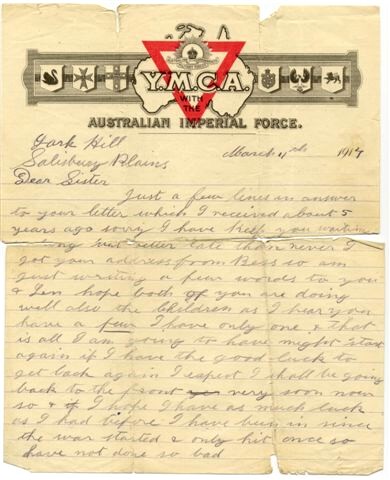 Y.M.C.A.
WITH THE
AUSTRALIAN IMPERIAL FORCE.
Lark Hill
Salisbury Plains
March 11th 1917
Dear Sister
Just a few lines in answer
to your letter which I received about 5
years ago sorry I have keep you waiting
long but better late than never I
got your address from Bess so am
just writing a few words to you
& Len hope both of you are doing
well also the Children as I hear you
have a few I have only one & that
is all I am going to have might start
again if I have the good luck to
get back again I expect I shall be going
back to the front very soon now
so & if I hope I have as much luck
as I had before I have been in since
the war started & only hit once so
have not done so bad